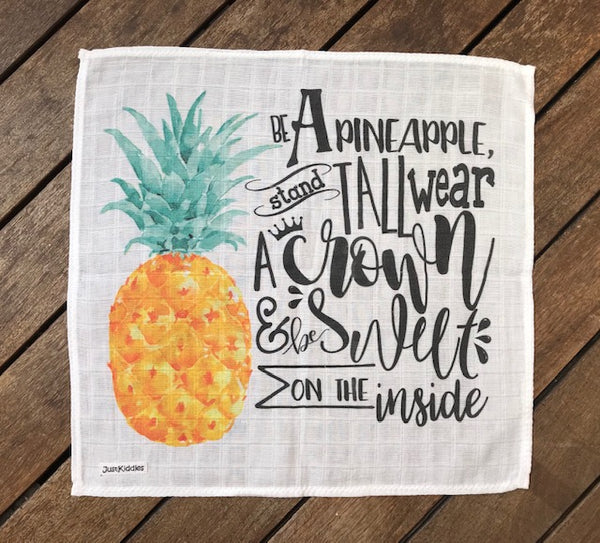 BE A PINEAPPLE,
stand TALL wear
A crown
& be sweet
ON THE inside
JustKiddies